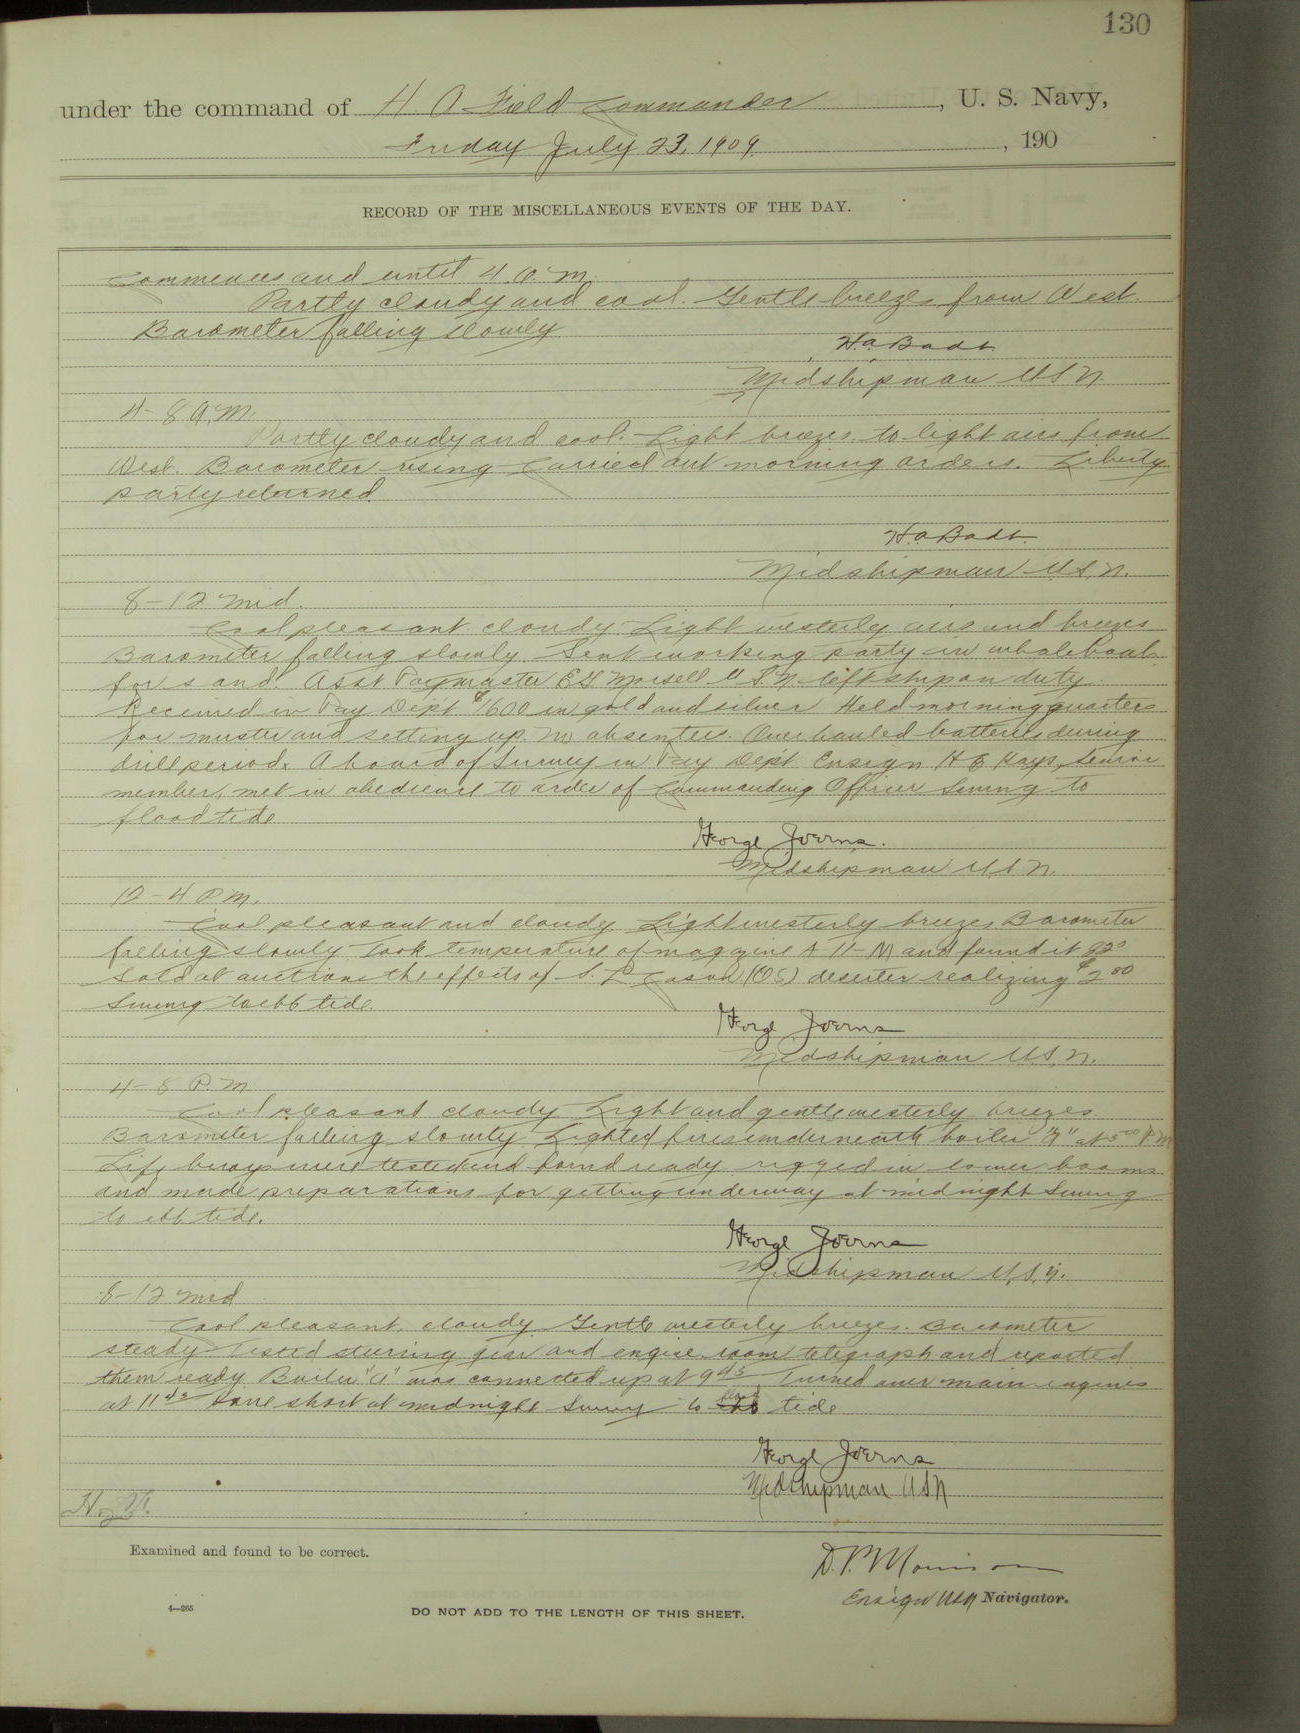 130
under the command of H A Field Commander, U. S. Navy,
Friday July 23, 1909, 190
RECORD OF THE MISCELLANEOUS EVENTS OF THE DAY.
Commences and until 4 A.M.
Partly cloudy and cool. Gentle breezes from West.
Barometer falling slowly
H.A. Badt
Midshipman USN
4-8 A.M.
Partly cloudy and cool. Light breezes to light airs from
West. Barometer rising Carried out morning orders. Liberty
party returned
H.A. Badt.
Midshipman U.S.N.
8-12 Mrd.
Cool pleasant cloudy Light westerly airs and breezes
Barometer falling slowly. Sent working party in whaleboat
for sand. Asst Paymaster E.T. Morsell U.S.N. left ship on duty
Received in Pay Dept $1600 in gold and silver Held morning quarters
for muster and setting up. No absentees. Overhauled batteries during
drill period. A board of Survey in Pay Dept Ensign H E Kays, Senior
member, met in obedience to order of Commanding Officer Swung to
flood tide
George Joerns.
Midshipman U.S.N.
12-4 P.M.
Cool pleasant and cloudy Light westerly breezes Barometer
falling slowly Took temperature of magazine A-11-M and found it 82°
Sold at auction the effects of S. L Cason (OS) deserter realizing $2.00
Swung to ebb tide.
George Joerns
Midshipman U.S.N.
4-8 P.M
Cool pleasant cloudy Light and gentle westerly breezes.
Barometer falling slowly Lighted fires underneath boiler "A" at 5 00 P.M
Life buoys were tested and found ready rigged in lower booms
and made preparations for getting underway at midnight Swung
to ebb tide.
George Joerns
Midshipman U.S.N.
8-12 Mid
Cool pleasant, cloudy Gentle westerly breezes. Barometer
steady Tested steering gear and engine room telegraph and reported
them ready Boiler "A" was connected up at 9 45 Turned over main engines
at 11 Hove short at midnight Swung to flood tide
George Joerns
Midshipman USN
Examined and found to be correct.
D.P. Morrison
Ensign USN Navigator.
4—265
DO NOT ADD TO THE LENGTH OF THIS SHEET.